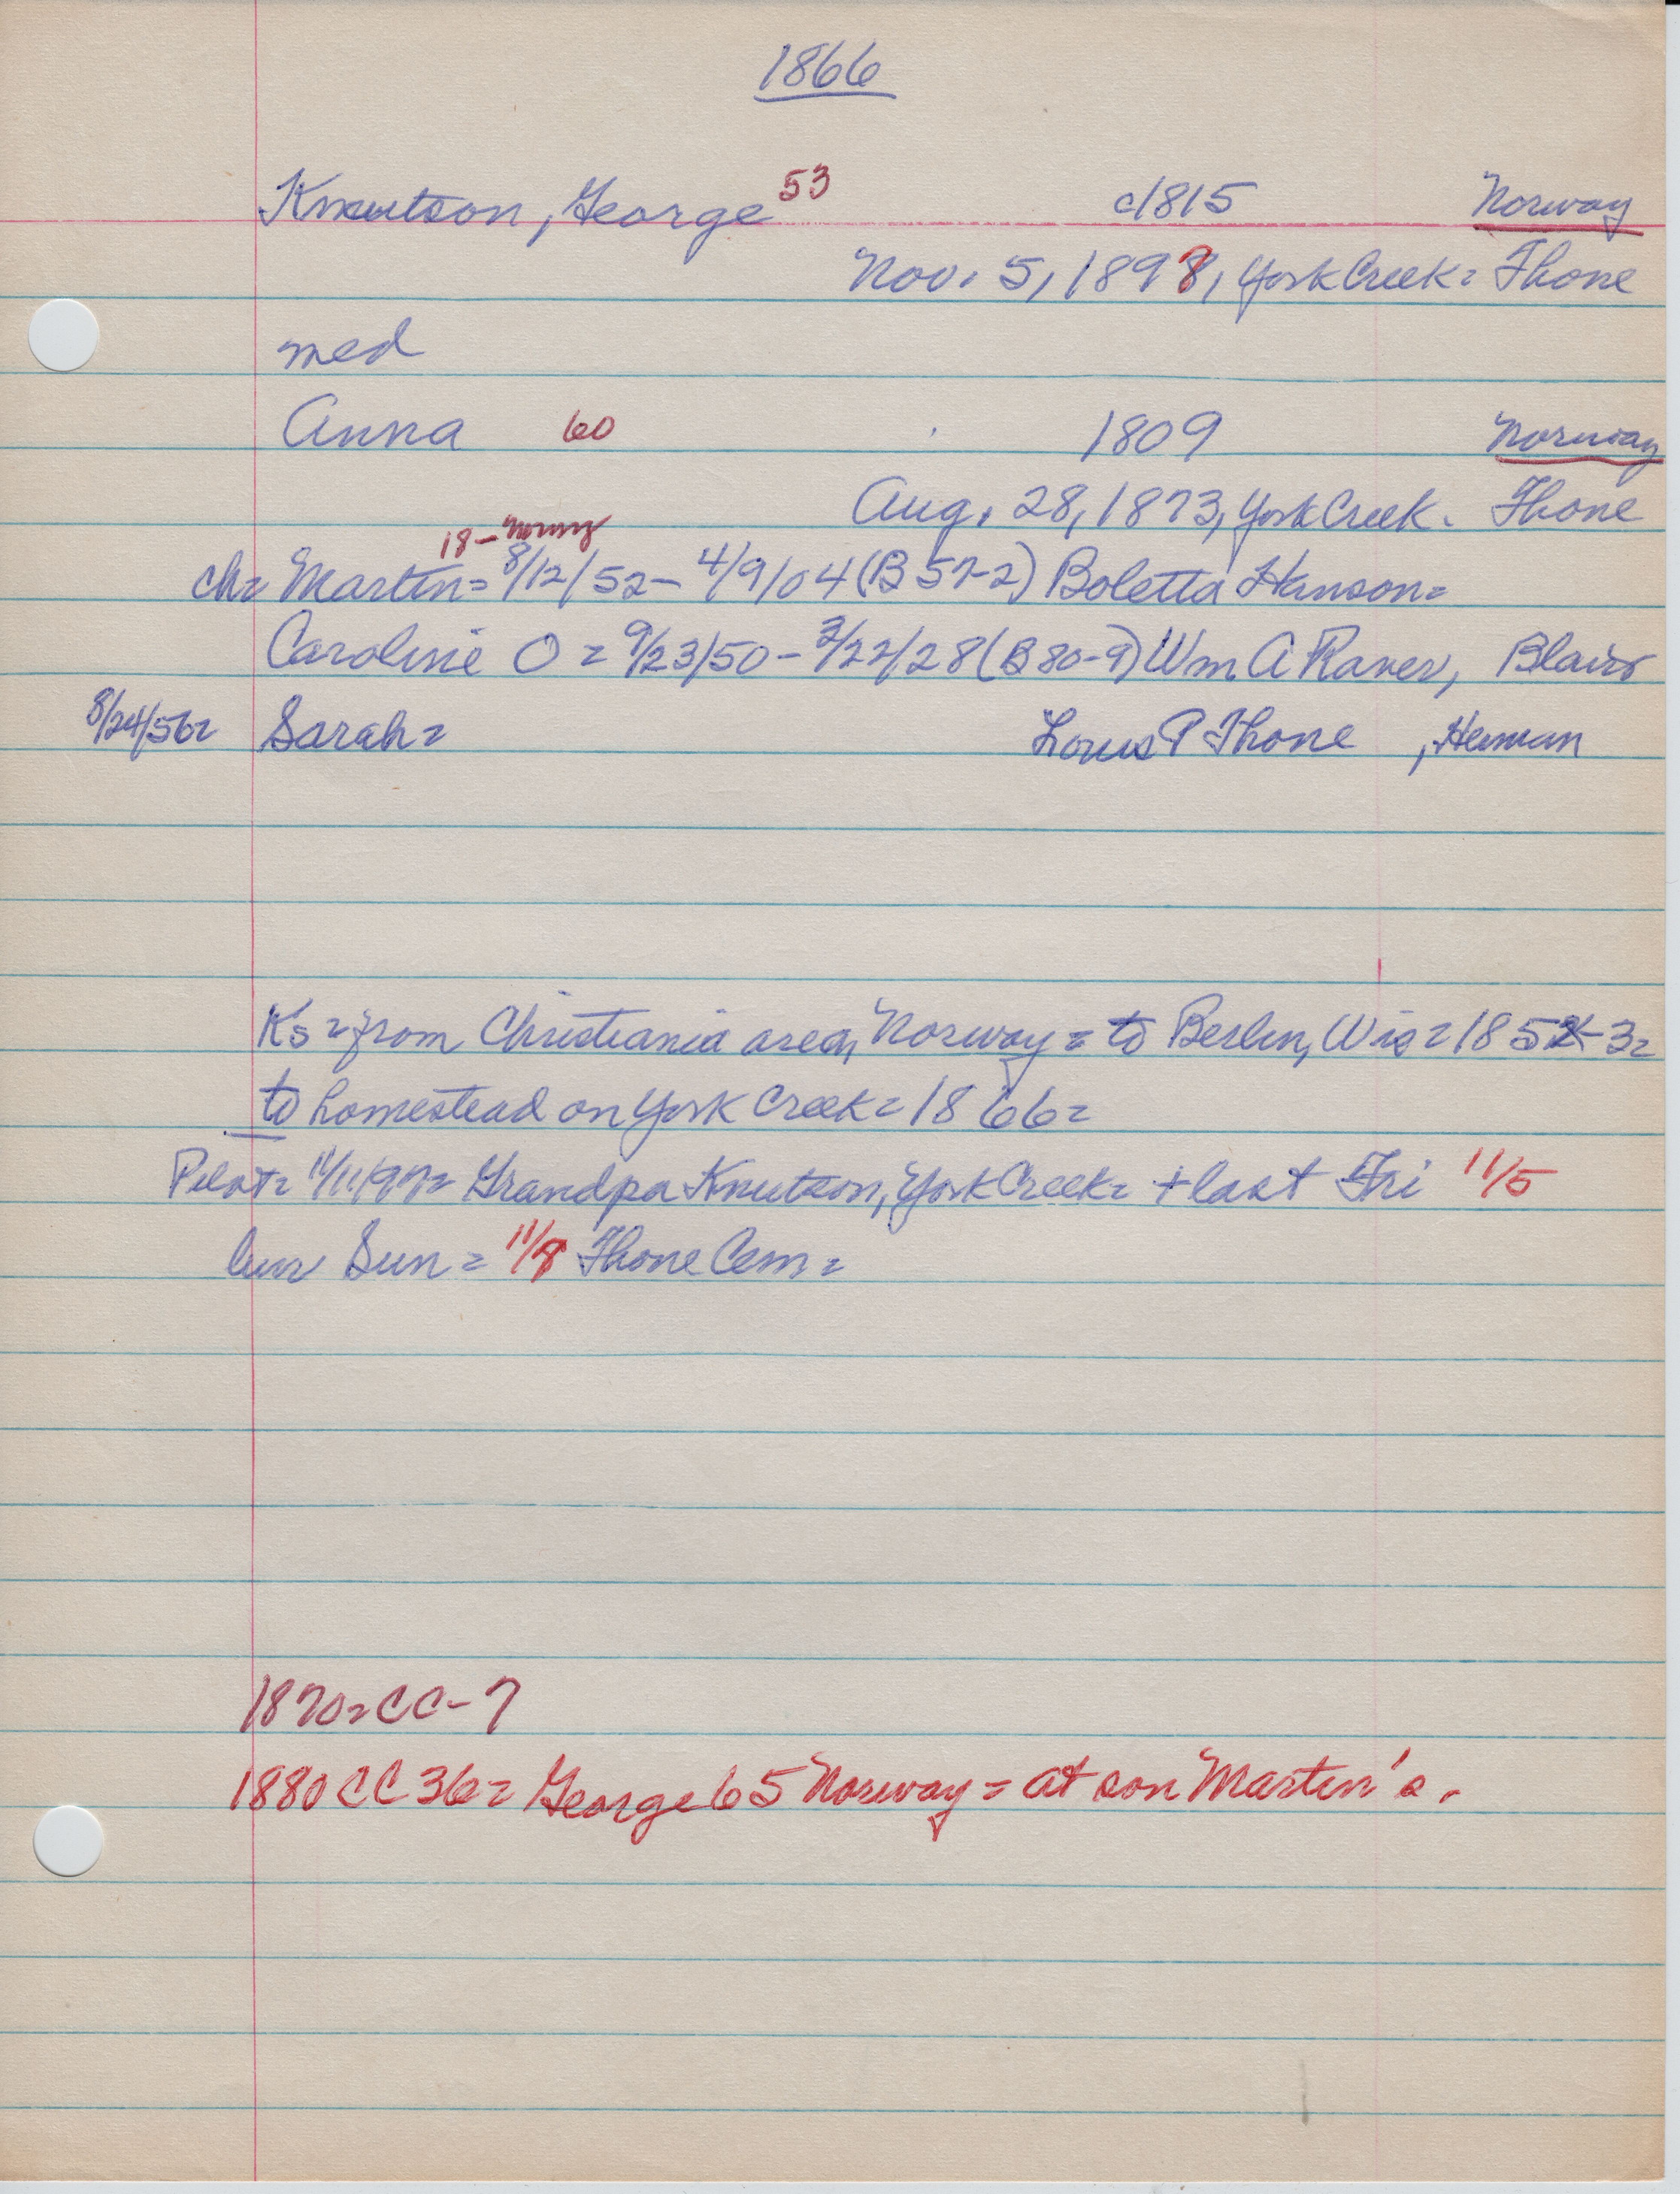 1866
Knutson, George 53 c1815 Norway
Nov. 5, 1897, York Creek = Thone
med
Anna 60 1809 Norway
Aug. 28, 1873, York Creek. Thone
18 - Norway
ch = Martin = 8/12/52 - 4/9/04 (B 57-2) Boletta Hanson =
Caroline O = 9/23/50 - 3/22/28 (B 80-9) Wm A Raner, Blair
8/24/56 = Sarah = Louis P Thone , Herman
Ks = from Christiania area, Norway = to Berlin, Wis = 1852-3 =
to homestead on York Creek = 1866 =
Pilot = 11/11/97 = Grandpa Knutson, York Creek = + last Fri 11/5
bur Sun = Thone Cem =
1870 = CC-7
1880 CC 36 = George 65 Norway = at son Martin's.